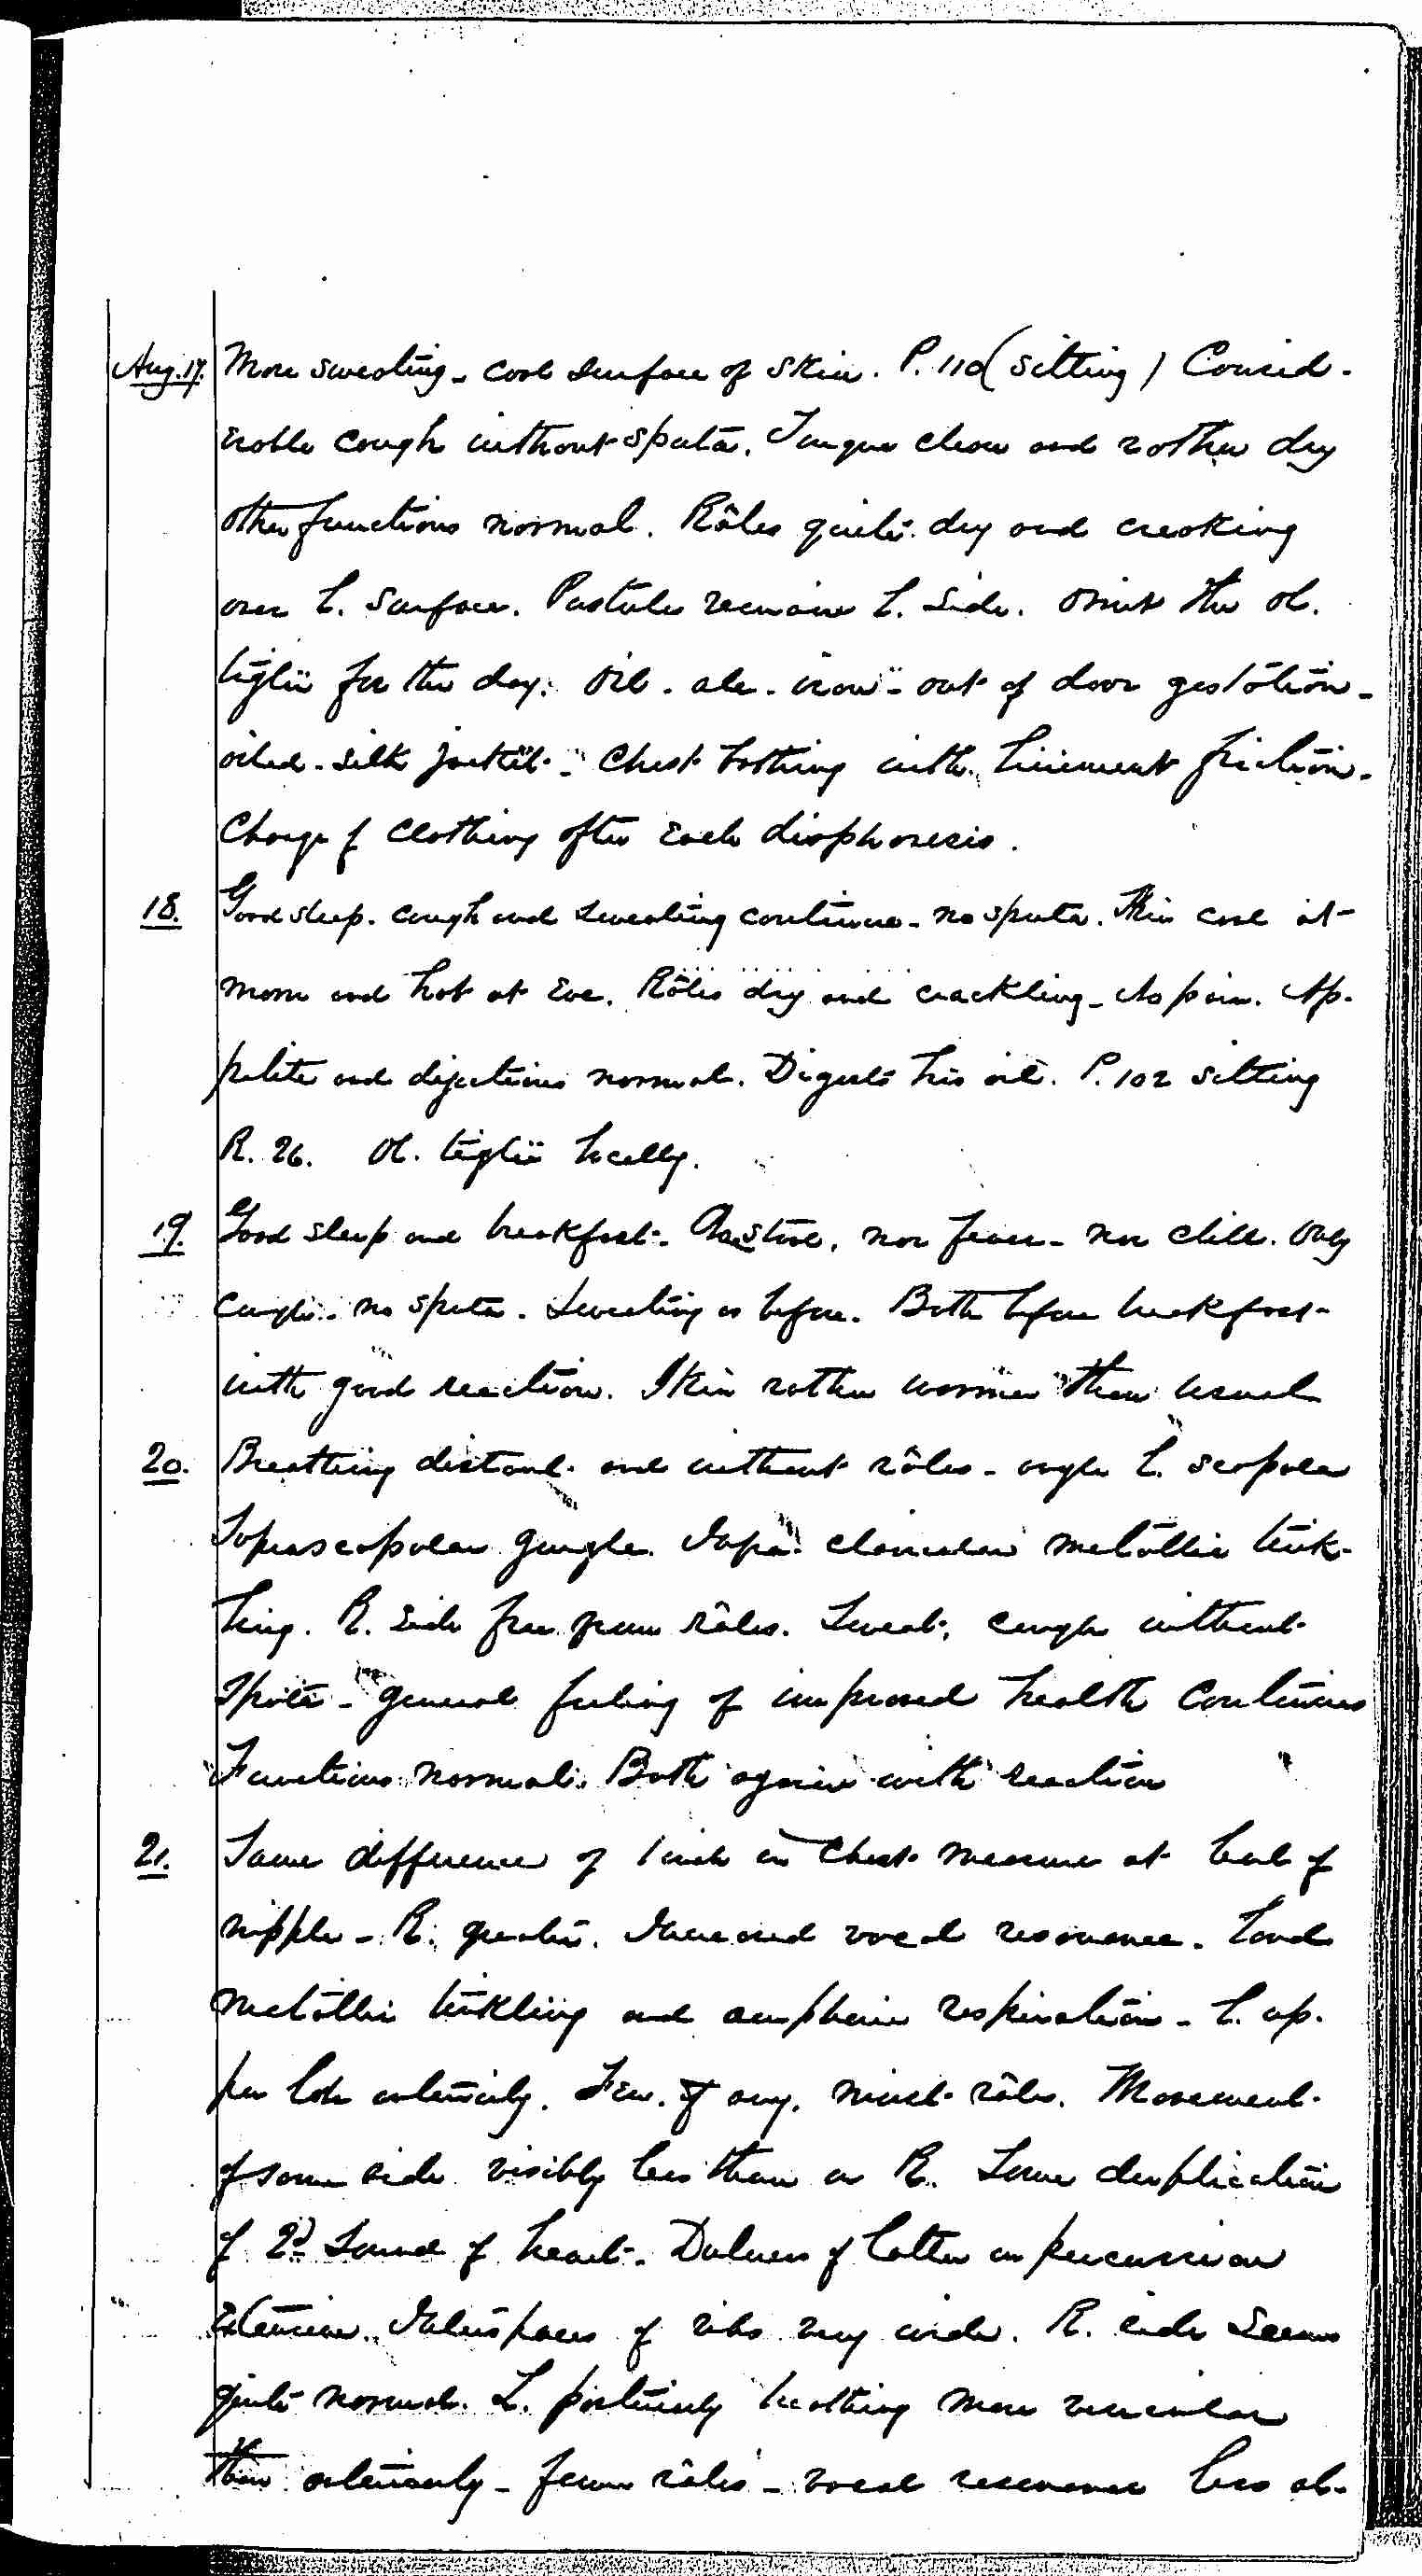 Aug. 17. More sweating - cool surface of skin. P. 110 (sitting) Consid-
erable cough without sputa. Tongue clean and rather dry
other functions normal. Râles quite dry and creaking
over L. surface. Pustules remain L. side. Omit the ol.
tiglii for the day. Oil - ale - iron - out of door gestation -
oiled-silk jacket - Chest bathing with liniment friction -
Change of clothing after each diaphoresis.
18. Good sleep. cough and sweating continue - no sputa. Skin cool at
morn and hot at eve. Râles dry and crackling - No pain. Ap-
petite and dejections normal. Digests his oil. P. 102 sitting
R. 26. Ol. tiglii locally.
19. Good sleep and breakfast. stool, nor fever - nor chill. Only
cough - no sputa. Sweating as before. Bath before breakfast
with good reaction. Skin rather warmer than usual
20. Breathing distant and without râles - angle L. scapula
Supascapular gurgle. Supa-clavicular metallic tink-
ling. R. side free from râles. Sweat, cough without
sputa - general feeling of improved health continues
Functions normal. Bath again with reaction
21. Same difference of 1 inch in chest measure at level of
nipple - R. greater. Increased vocal resonance. Loud
metallic tinkling and amphoric respiration - L. up-
per lobe anteriorly. Few, if any, moist râles. Movement
of same side visibly less than on R. Some duplication
of 2d sound of heart. Dulness of latter on percussion
extensive. Interspaces of ribs very wide. R. side seems
quite normal. L. posteriorly breathing more vesicular
than anteriorly - fewer râles - vocal resonance less ob-